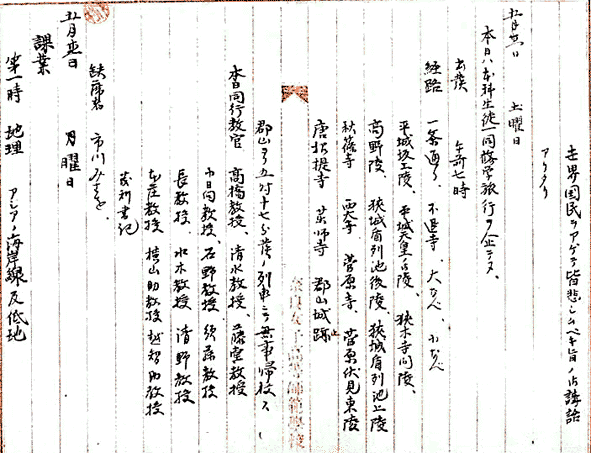 世界国民ヲアゲテ皆悲シムベキ旨ノ御講話
アリタリ
五月廿八日 土曜日
本日ハ本科生徒一同修学旅行ヲ企テタ、
出発 午前七時
経路 一条通リ、不退寺、大ナベ、小ナベ
平城坂上陵、平城天皇々陵、狭木寺間陵、
高野陵、狭城盾列池後陵、狭城盾列池上陵
秋篠寺 西大寺 菅原寺、菅原伏見東陵
唐招提寺 薬師寺 郡山城跡
郡山ヨリ五時十七分発ノ列車ニテ無事帰校ス
本日同行教官 高橋教授、清水教授、藤堂教授
小日向教授、石野教授 須藤教授
長教授、水木教授 清野教授
横山助教授 越智助教授
書記
欠席者 市川みすを、
五月卅日 月曜日
課業
第一時 地理 アジアノ海岸線及低地
奈良女子高等師範学校